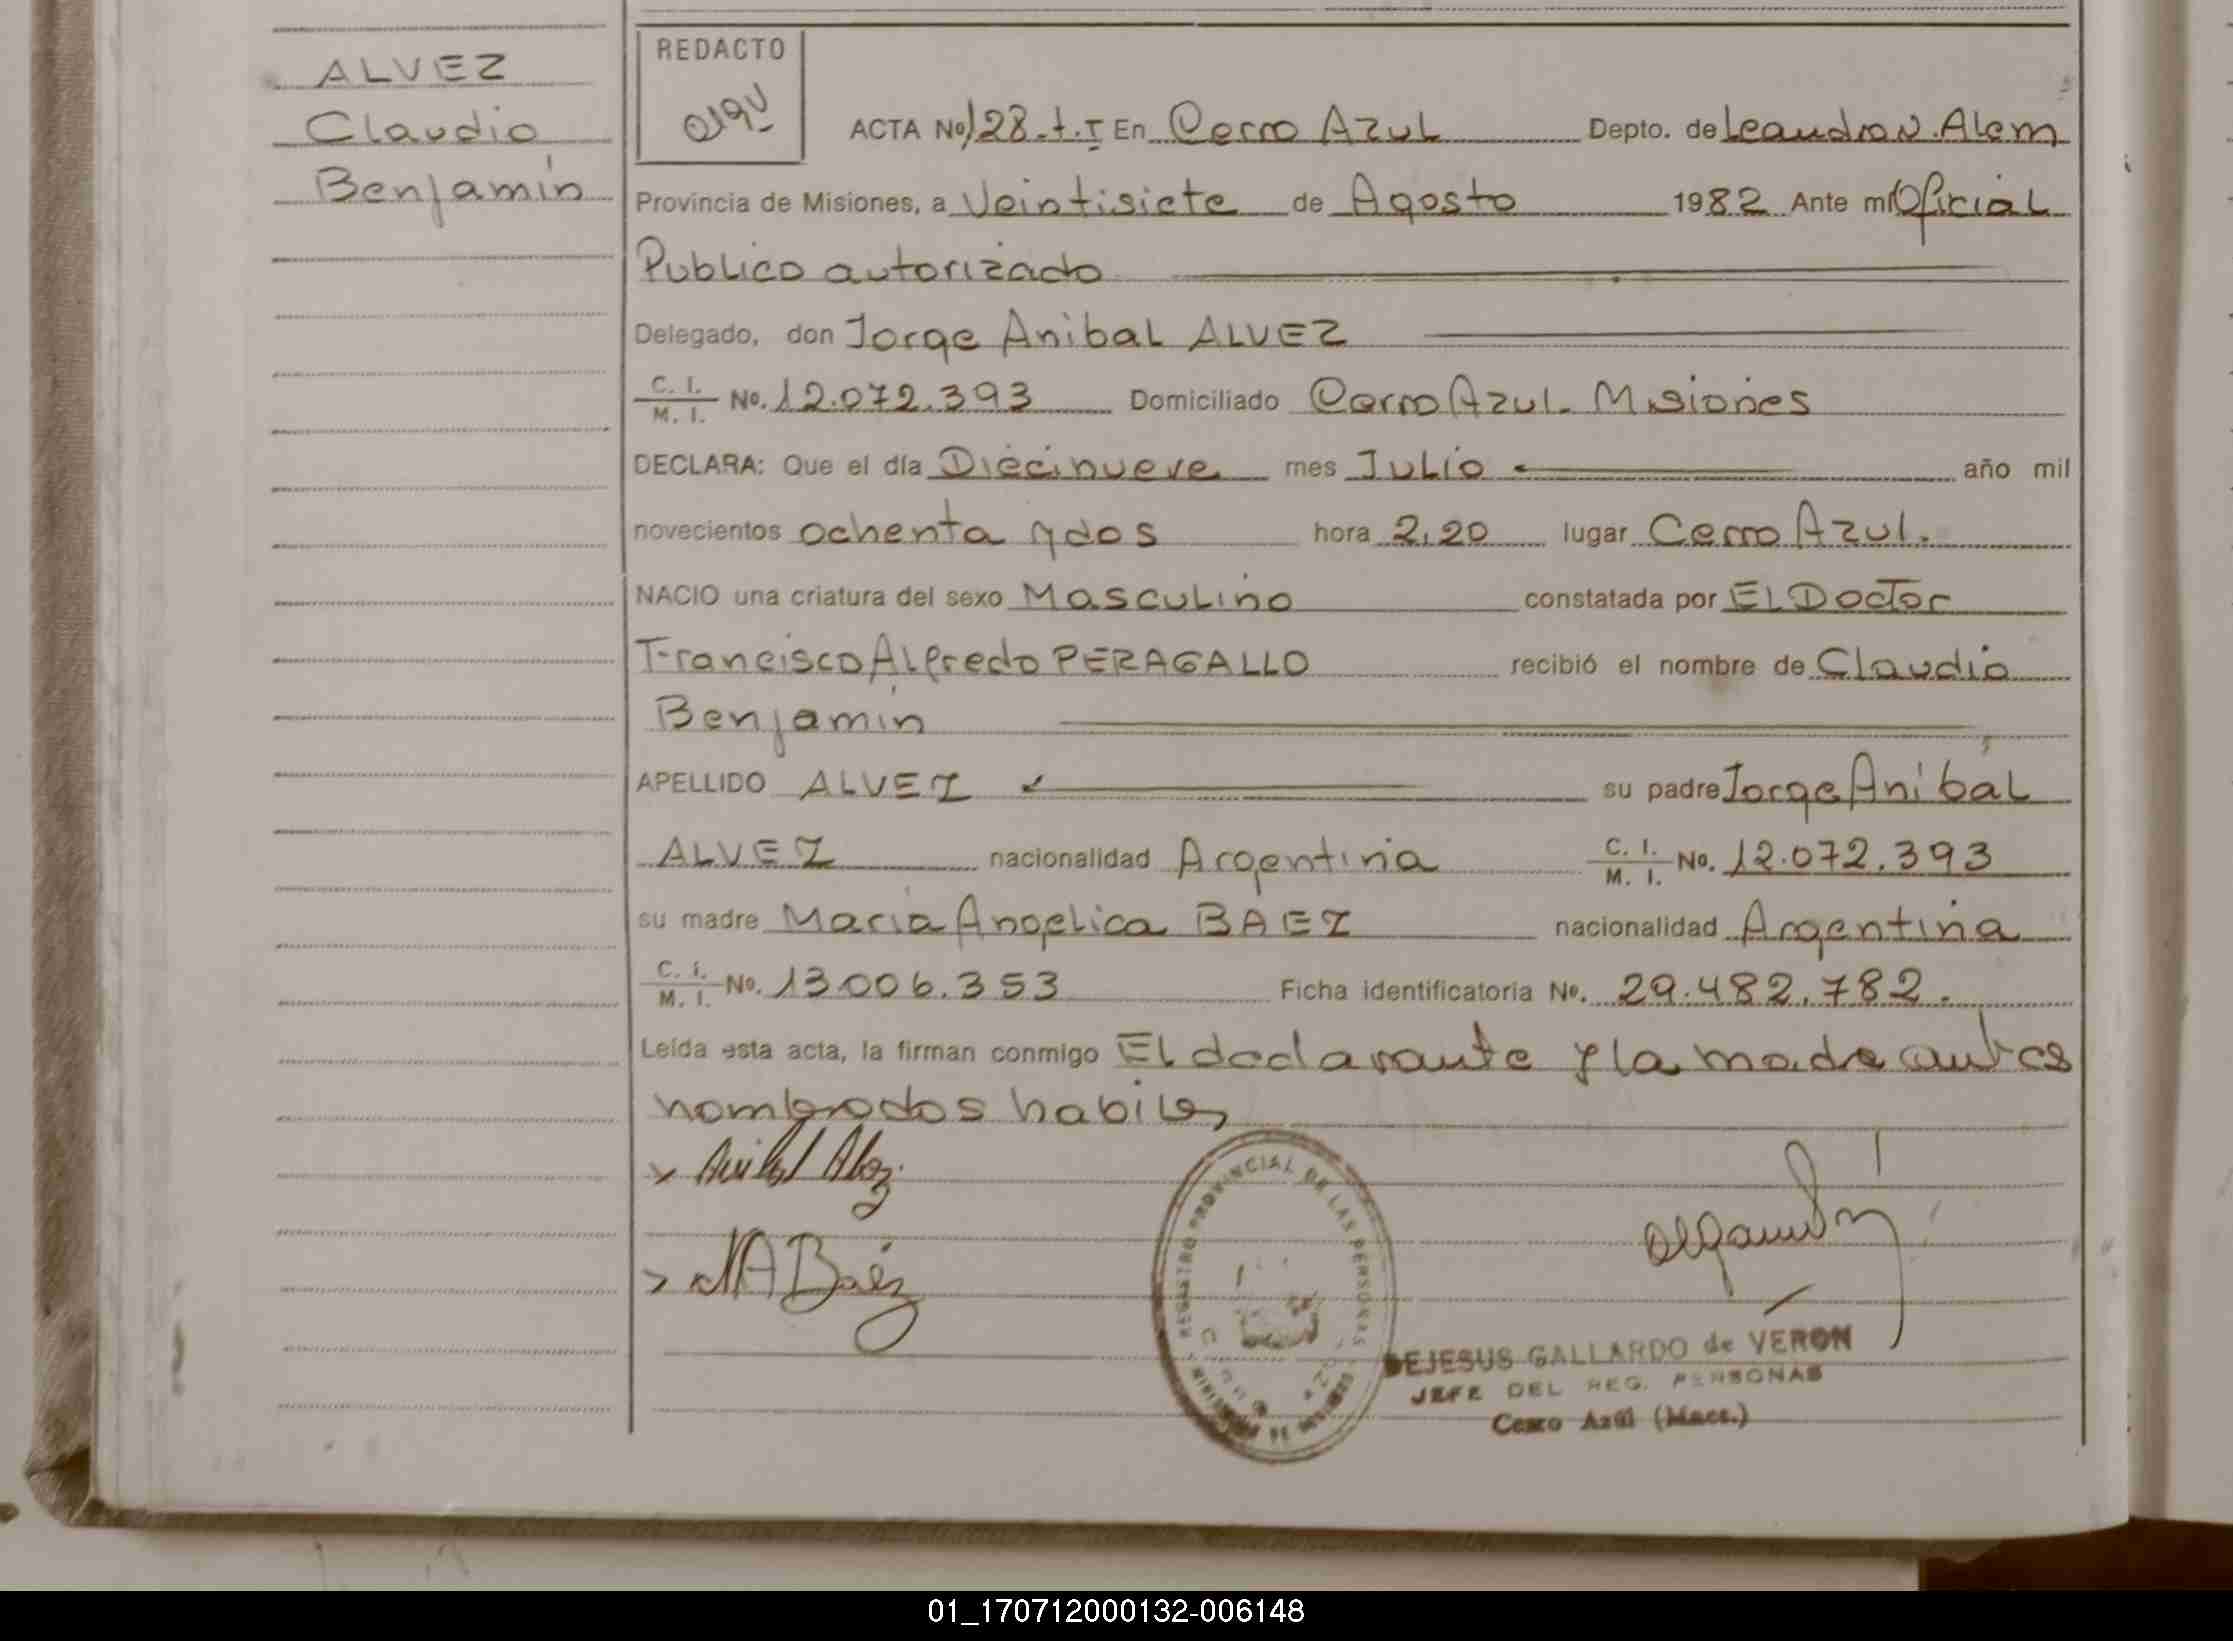 ALVEZ
Claudio
Benjamín
REDACTO
ACTA No 128.t.I En Cerro Azul Depto. de Leandro N. Alem
Provincia de Misiones, a Veintisiete de Agosto 1982 Ante mí Oficial
Publico autorizado
Delegado, don Jorge Anibal ALVEZ
C. I. / M. I. No. 12.072.393 Domiciliado Cerro Azul. Misiones
DECLARA: Que el día Diecinueve mes Julio año mil
novecientos ochenta y dos hora 2,20 lugar Cerro Azul.
NACIO una criatura del sexo Masculino constatada por El Doctor
Francisco Alfredo PERAGALLO recibió el nombre de Claudio
Benjamín
APELLIDO ALVEZ su padre Jorge Anibal
ALVEZ nacionalidad Argentina C. I. / M. I. No. 12.072.393
su madre Maria Angelica BAEZ nacionalidad Argentina
C. I. / M. I. No. 13.006.353 Ficha identificatoria No. 29.482.782.
Leída esta acta, la firman conmigo El declarante y la madre antes
nombrados habiles
Anibal Alvez
MA Baéz
REGISTRO PROVINCIAL DE LAS PERSONAS
DEJESUS GALLARDO de VERON
JEFE DEL REG. PERSONAS
Cerro Azul (Mnes.)
01_170712000132-006148